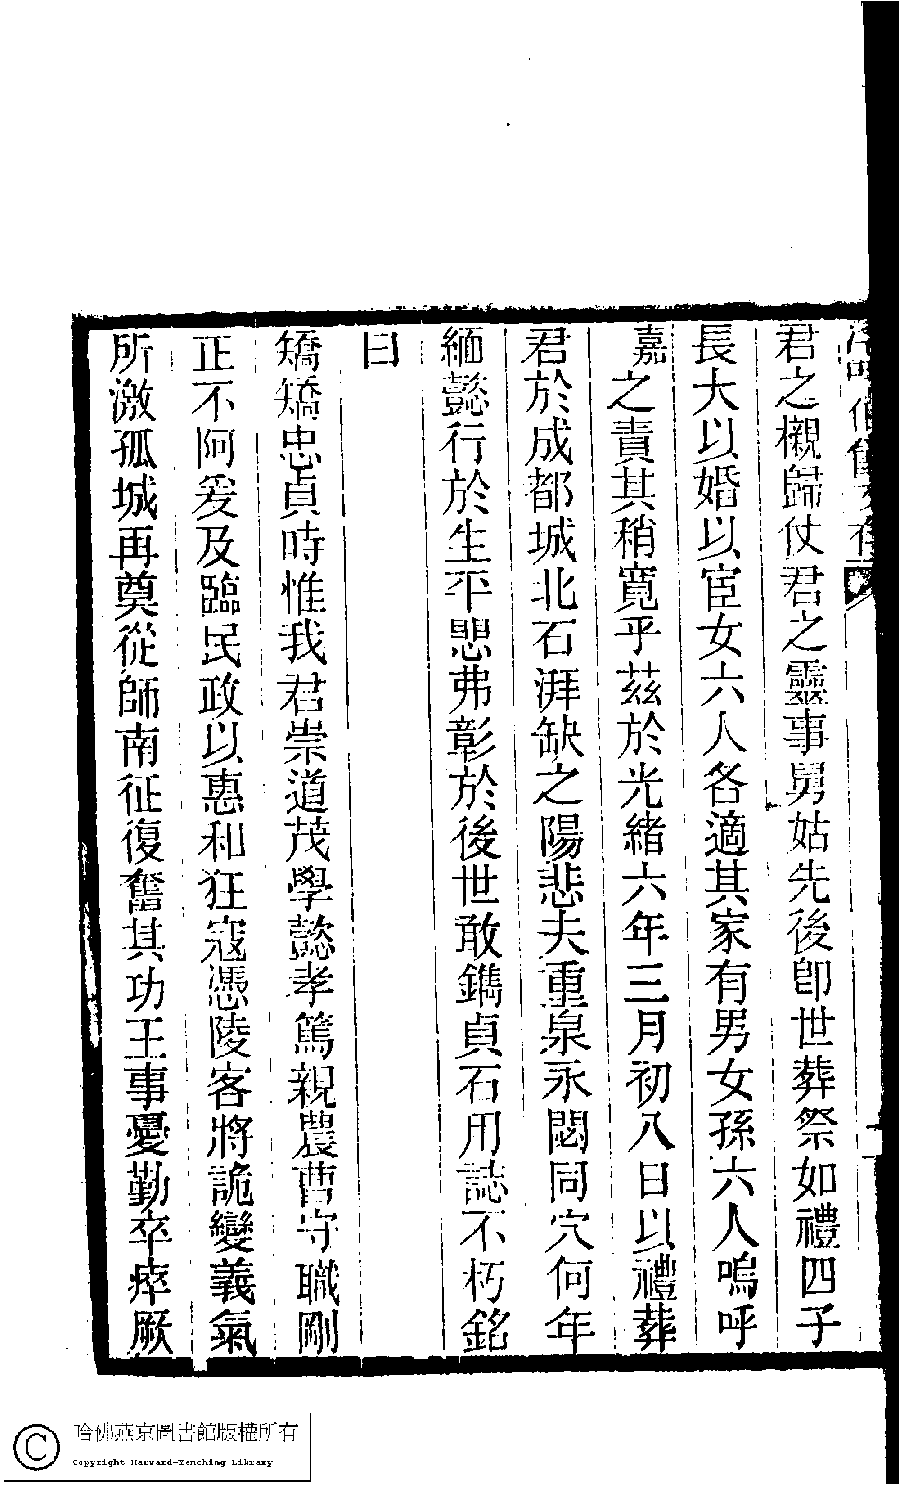 君之櫬歸仗君之靈事舅姑先後卽世葬祭如禮四子
長大以婚以宦女六人各適其家有男女孫六人嗚呼
嘉之責其稍寬乎茲於光緒六年三月初八日以禮葬
君於成都城北石湃缺之陽悲夫重泉永閟同穴何年
緬懿行於生平思弗彰於後世敢鐫貞石用誌不朽銘
曰
矯矯忠貞時惟我君崇道茂學懿孝篤親農曹守職剛
正不阿爰及臨民政以惠和狂寇憑陵客將詭變義氣
所激孤城再奠從師南征復奮其功王事憂勤卒瘁厥
哈佛燕京圖書館版權所有
Copyright Harvard-Yenching Library